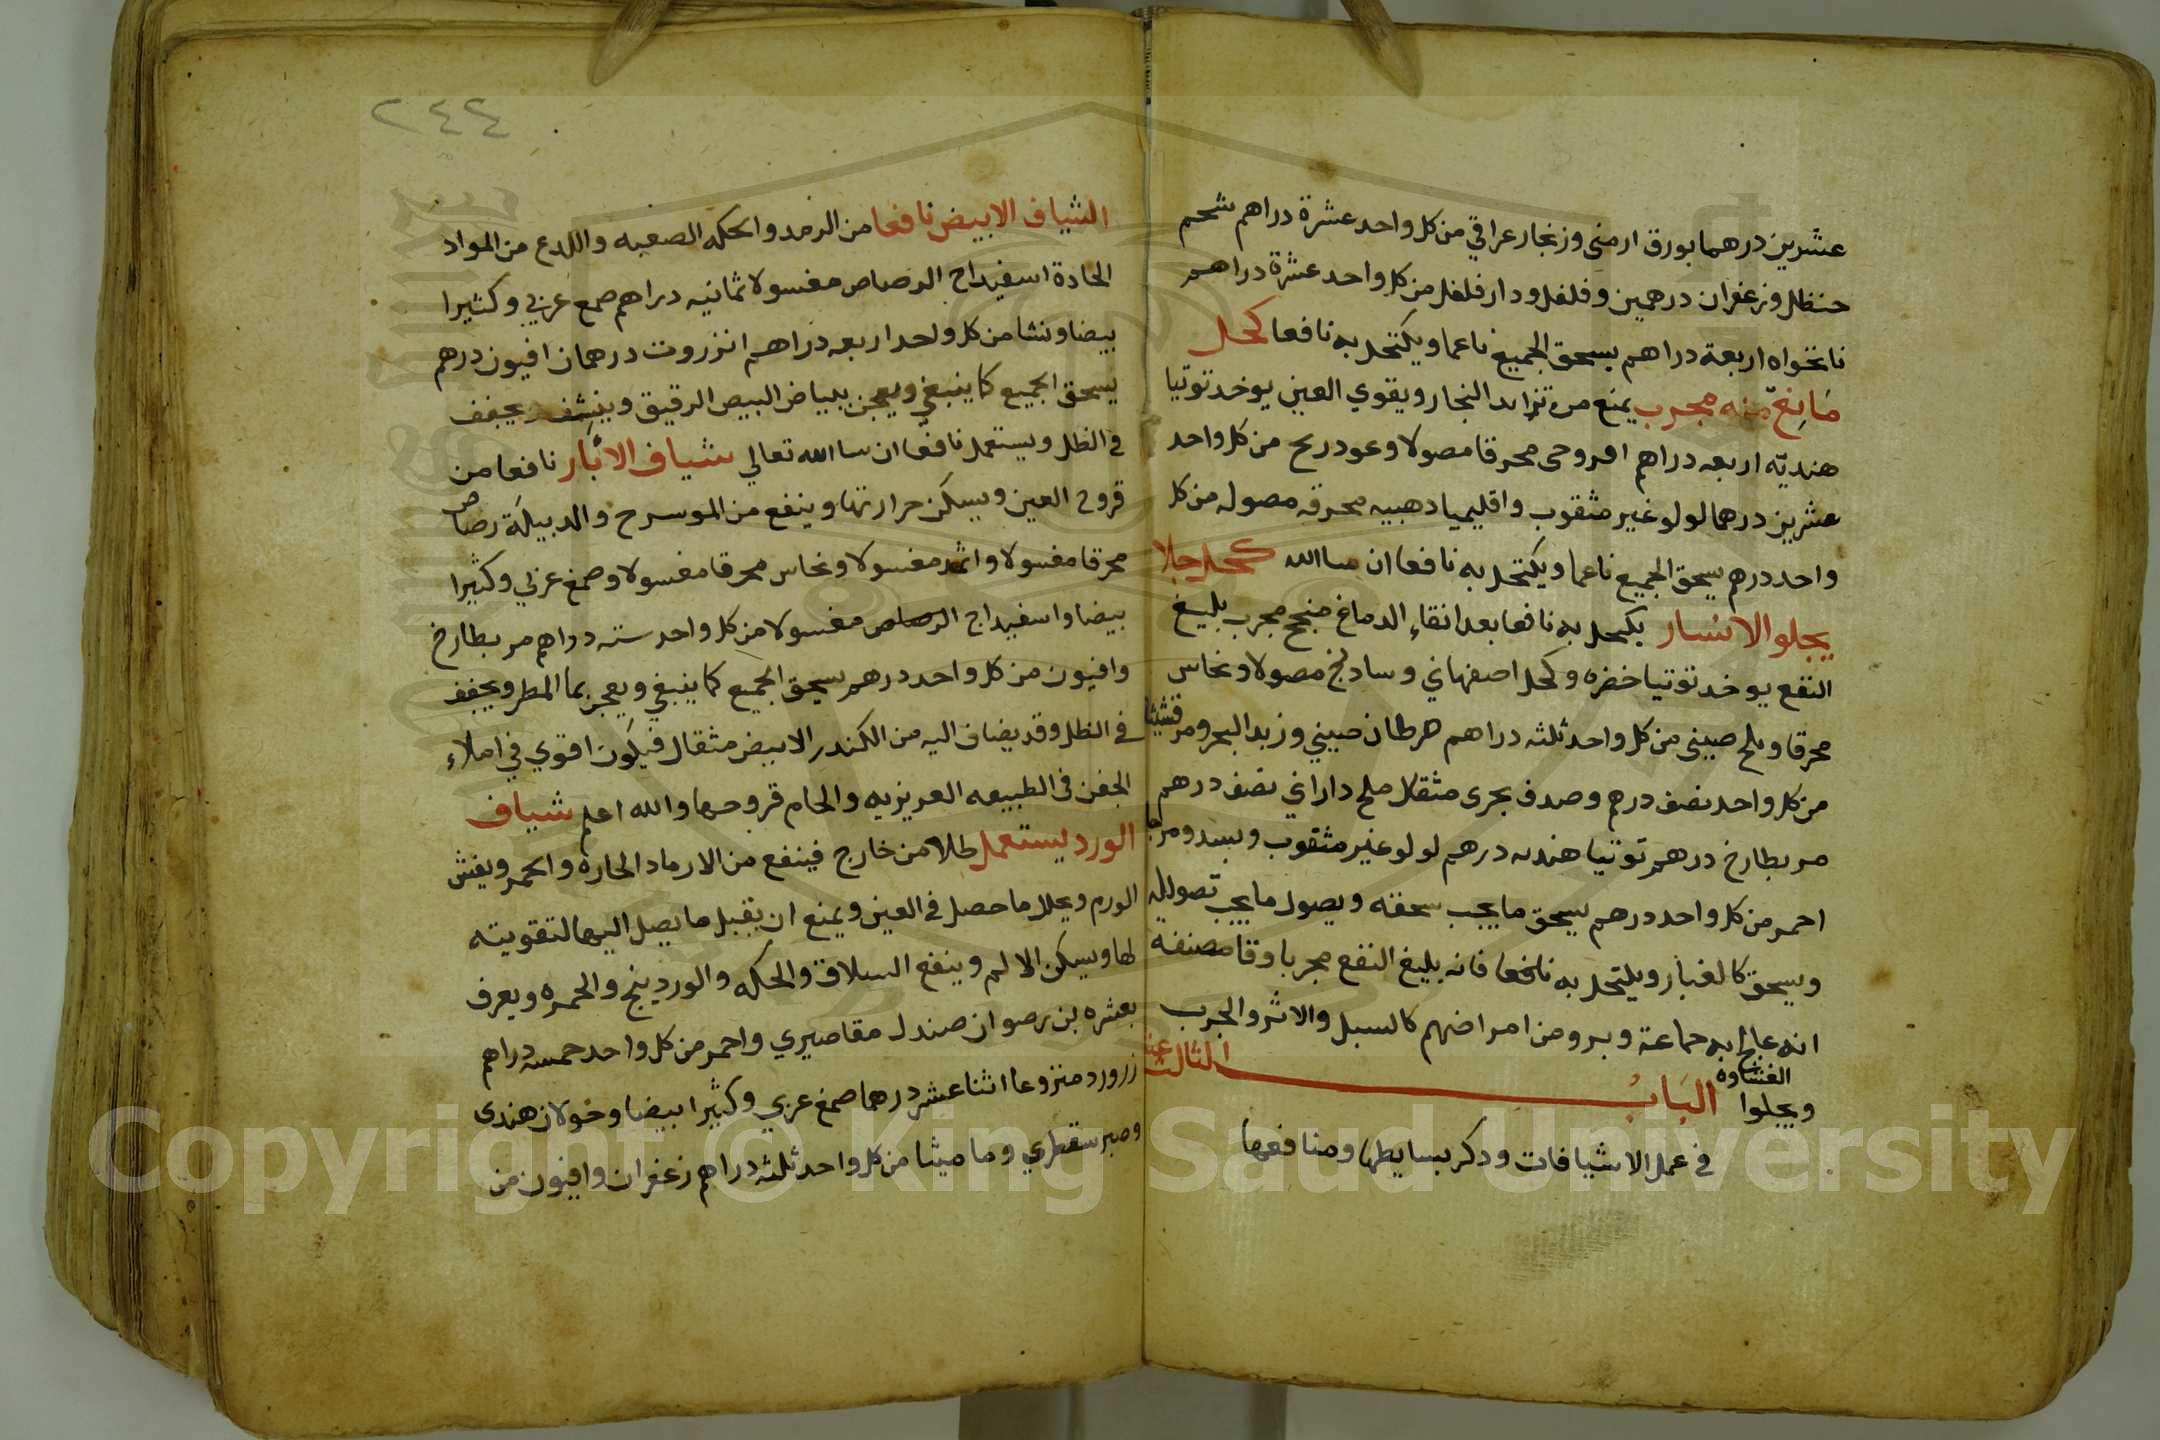 عشرين درهما بورق ارمني وزنجار عراقي من كل واحد عشرة دراهم شحم
حنظل وزعفران درهمين وفلفل ودار فلفل من كل واحد عشرة دراهم
نانخواه اربعة دراهم يسحق الجميع ناعما ويكتحل به نافعا كحل
مانع منه مجرب يمنع من تزايد البخار ويقوي العين يوخد توتيا
هنديه اربعه دراهم محرقا مصولا وعود ريح من كل واحد
عشرين درهما لولو غير مثقوب واقليميا دهبيه محرقه مصوله من كل
واحد درهم يسحق الجميع ناعما ويكتحل به نافعا ان سا الله كحل جلا
يجلو الانسار يكحل به نافعا بعد انقاء الدماغ منجح مجرب بليغ
النفع يوخد توتيا خضره وكحل اصفهاني وسادنج مصولا ونحاس
محرقا وملح صيني من كل واحد ثلثه دراهم هرطان صيني وزبد البحر ومرقشيثا
من كل واحد نصف درهم وصدف بحرى مثقال ملح داراني نصف درهم
مر بطارخ درهم توتيا هنديه درهم لولو غير مثقوب وبسد ومرجان
احمر من كل واحد درهم يسحق ما يجب سحقه ويصول ما يجب تصويله
ويسحق كالغبار ويكتحل به نافعا فانه بليغ النفع مجربا وقا مصنفه
انه عالج به جماعة وبرو من امراضهم كالسبل والاثر والجرب
ويجلوا الغشاوه الباب الثالث عشر
في عمل الاشيافات ودكر بسايطها ومنافعها
٢٤٤
الشياف الابيض نافعا من الرمد والحكه الصعبه واللدع من المواد
الحادة اسفيداج الرصاص مغسولا ثمانيه دراهم صمع عربي وكثيرا
بيضا ونشا من كل واحد اربعه دراهم انزروت درهمان افيون درهم
يسحق الجميع كما ينبغي ويعجن ببياض البيض الرقيق وينشف ويجفف
في الظل ويستعمل نافعا ان سا الله تعالي شياف الأبار نافعا من
قروح العين ويسكن حرارتها وينفع من الموسرح والدبيلة رصاص
محرقا مغسولا واثمد مغسولا ونحاس محرقا مغسولا وصمغ عربي وكثيرا
بيضا واسفيداج الرصاص مغسولا من كل واحد سته دراهم مر بطارخ
وافيون من كل واحد درهم يسحق الجميع كما ينبغي ويعجن بما المطر ويجفف
في الظل وقد يضاف اليه من الكندر الابيض مثقال فيكون اقوي في املاء
الجفن في الطبيعه الغريزيه والحام قروحها والله اعلم شياف
الورد يستعمل طلا من خارج فينفع من الارماد الحاره والحمر ويفش
الورم ويحلل ما حصل في العين ويمنع ان يقبل ما يصل اليها لتقويته
لها ويسكن الالم وينفع السلاق والحكه والوردينج والحمره ويعرف
بعشره بن رضوان صندل مقاصيري واحمر من كل واحد خمسه دراهم
زرورد منزوعا اثنا عشر درهما صمغ عربي وكثيرا بيضا وخولان هندى
وصبر سقطري وماميثا من كل واحد ثلثه دراهم زعفران وافيون من
Copyright © King Saud University